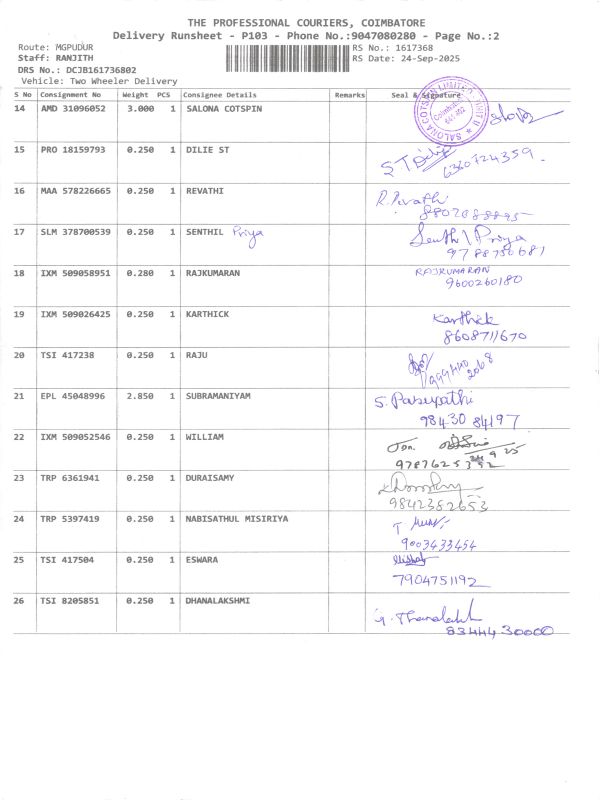 THE PROFESSIONAL COURIERS, COIMBATORE
Delivery Runsheet - P103 - Phone No.:9047080280 - Page No.:2
Route: MGPUDUR
RS No.: 1617368
Staff: RANJITH
RS Date: 24-Sep-2025
DRS No.: DCJB161736802
Vehicle: Two Wheeler Delivery
S No Consignment No Weight PCS Consignee Details Remarks Seal & Signature
14 AMD 31096052 3.000 1 SALONA COTSPIN
15 PRO 18159793 0.250 1 DILIE ST
6360724359
16 MAA 578226665 0.250 1 REVATHI
R. Revathi
17 SLM 378700539 0.250 1 SENTHIL Priya
Senthil Priya
9788750681
18 IXM 509058951 0.280 1 RAJKUMARAN
RAJKUMARAN
9600260180
19 IXM 509026425 0.250 1 KARTHICK
Karthick
8608711670
20 TSI 417238 0.250 1 RAJU
21 EPL 45048996 2.850 1 SUBRAMANIYAM
S. Pasupathi
98430 84197
22 IXM 509052546 0.250 1 WILLIAM
23 TRP 6361941 0.250 1 DURAISAMY
9842382653
24 TRP 5397419 0.250 1 NABISATHUL MISIRIYA
9003433454
25 TSI 417504 0.250 1 ESWARA
7904751192
26 TSI 8205851 0.250 1 DHANALAKSHMI
8344430000